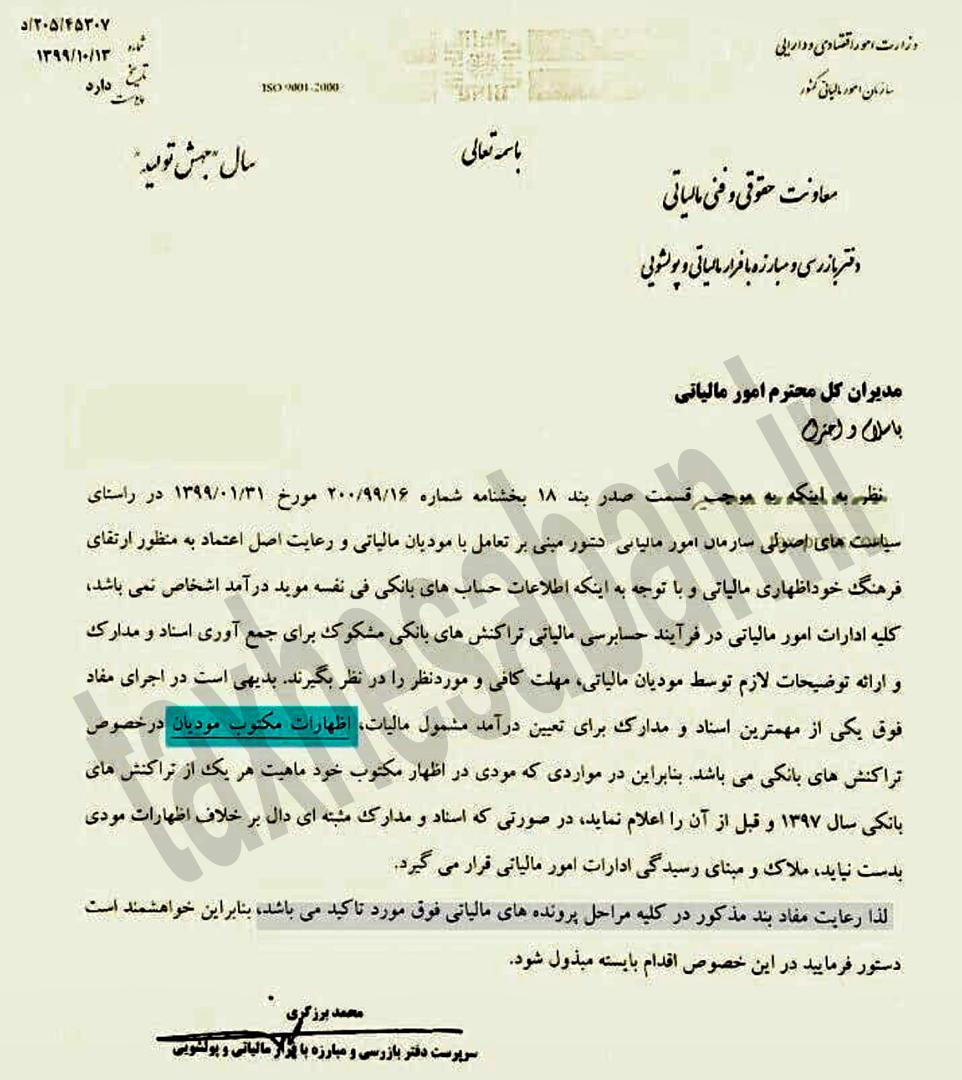 وزارت امور اقتصادی و دارایی
سازمان امور مالیاتی کشور
ISO 9001-2000
شماره ۲۰۵/۴۵۳۰۷/د
تاریخ ۱۳۹۹/۱۰/۱۳
پیوست دارد
باسمه تعالی
سال "جهش تولید"
معاونت حقوقی و فنی مالیاتی
دفتر بازرسی و مبارزه با فرار مالیاتی و پولشویی
مدیران کل محترم امور مالیاتی
باسلام و احترام
نظر به اینکه به موجب قسمت صدر بند ۱۸ بخشنامه شماره ۲۰۰/۹۹/۱۶ مورخ ۱۳۹۹/۰۱/۳۱ در راستای
سیاست های اصولی سازمان امور مالیاتی کشور مبنی بر تعامل با مودیان مالیاتی و رعایت اصل اعتماد به منظور ارتقای
فرهنگ خوداظهاری مالیاتی و با توجه به اینکه اطلاعات حساب های بانکی فی نفسه موید درآمد اشخاص نمی باشد،
کلیه ادارات امور مالیاتی در فرآیند حسابرسی مالیاتی تراکنش های بانکی مشکوک برای جمع آوری اسناد و مدارک
و ارائه توضیحات لازم توسط مودیان مالیاتی، مهلت کافی و موردنظر را در نظر بگیرند. بدیهی است در اجرای مفاد
فوق یکی از مهمترین اسناد و مدارک برای تعیین درآمد مشمول مالیات، اظهارات مکتوب مودیان درخصوص
تراکنش های بانکی می باشد. بنابراین در مواردی که مودی در اظهار مکتوب خود ماهیت هر یک از تراکنش های
بانکی سال ۱۳۹۷ و قبل از آن را اعلام نماید، در صورتی که اسناد و مدارک مثبته ای دال بر خلاف اظهارات مودی
بدست نیاید، ملاک و مبنای رسیدگی ادارات امور مالیاتی قرار می گیرد.
لذا رعایت مفاد بند مذکور در کلیه مراحل پرونده های مالیاتی فوق مورد تاکید می باشد، بنابراین خواهشمند است
دستور فرمایید در این خصوص اقدام بایسته مبذول شود.
محمد برزگری
سرپرست دفتر بازرسی و مبارزه با فرار مالیاتی و پولشویی
taxhesaban.ir